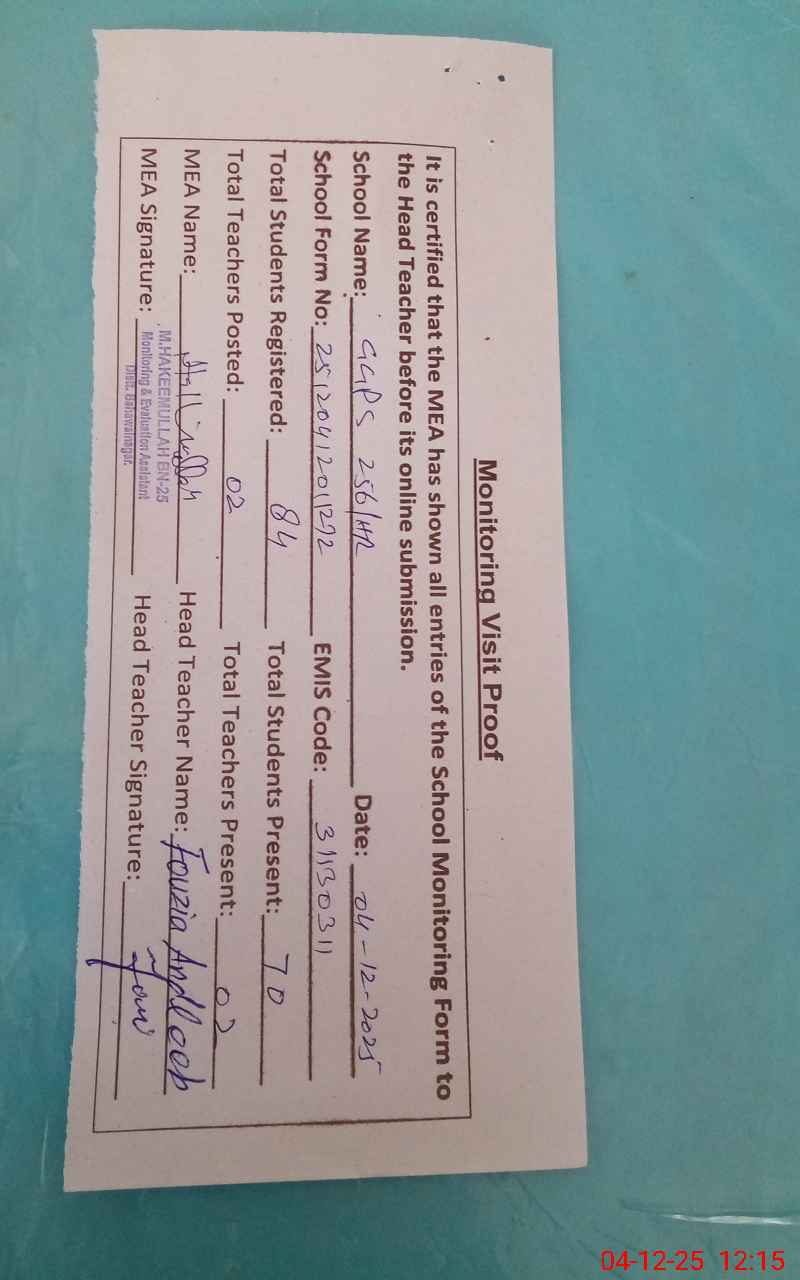 Monitoring Visit Proof
It is certified that the MEA has shown all entries of the School Monitoring Form to
the Head Teacher before its online submission.
School Name: GGPS 256/HR Date: 04-12-2025
School Form No: 25120412011292 EMIS Code: 31130311
Total Students Registered: 84 Total Students Present: 70
Total Teachers Posted: 02 Total Teachers Present: 02
MEA Name: Head Teacher Name: Fouzia Andleeb
M.HAKEEMULLAH BN-25
Monitoring & Evaluation Assistant
Distt. Bahawalnagar.
MEA Signature: Head Teacher Signature:
04-12-25 12:15